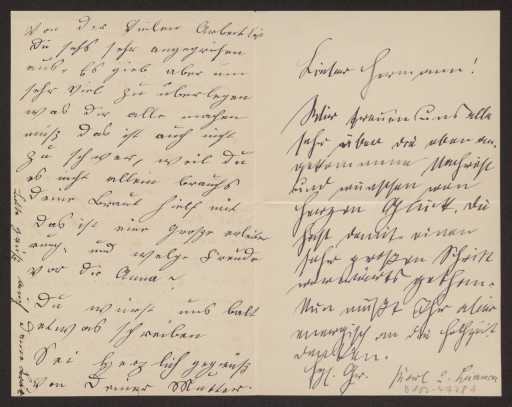 Von der vielen Arbeit bist
Du sehr angegriffen
aus. Es gieb aber nun
sehr viel zu überlegen
was Du alle machen
muß das ist auch nicht
zu schwer, weil Du
es nicht allein brauchs
Deine Braut hielf mit
das ist eine große erleich
rung. und welge Freude
vor die Anna.
Du wirst uns balt
etwas schreiben
Sei herzlich gegrüß
von Deiner Mutter.
Lieber Hermann!
Wir freuen uns alle
sehr über die eben an-
gekommene Nachricht
und wünschen von
Herzen Glück. Du
hast damit einen
sehr großen Schritt
vorwärts gethan.
Nun müßt Ihr aber
energisch an die Hochzeit
denken.
hzl. Gr.